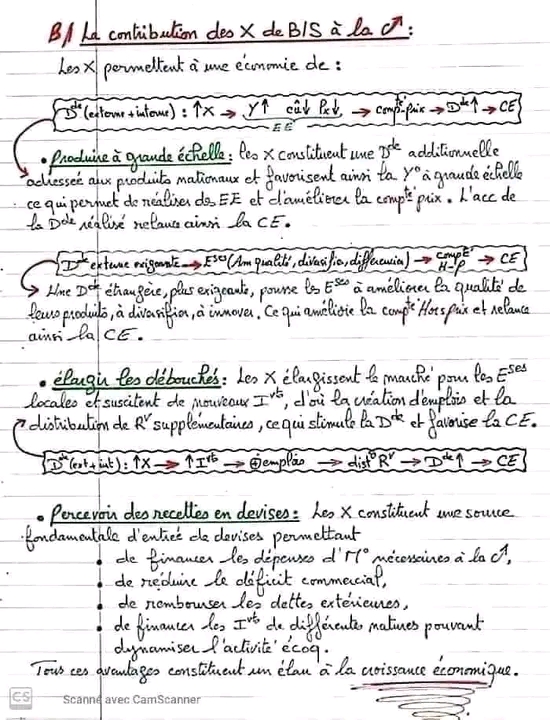 B/ La contribution des X de B/S à la C↗ :
Les X permettent à une économie de :
Dde (externe + interne) : ↑X → Y↑ càd Px↓ → compté-prix → Dde↑ → CE
EE
• Produire à grande échelle : les X constituent une Dde additionnelle
adressée aux produits nationaux et favorisent ainsi la Y° à grande échelle
ce qui permet de réaliser des EE et d'améliorer la compté prix. L'acc de
la Dde réalisé relance ainsi la CE.
Dde externe exigeante → Eses (Am qualité, diversifia, différencia) → compté H-P → CE
→ Une Dde étrangère, plus exigeante, pousse les Eses à améliorer la qualité de
leurs produits, à diversifier, à innover. Ce qui améliore la compté Hors prix et relance
ainsi la CE.
• élargir les débouchés : Les X élargissent le marché pour les Eses
locales et suscitent de nouveaux Ivts, d'où la création d'emplois et la
distribution de Rv supplémentaires, ce qui stimule la Dde et favorise la CE.
Dde (ext + int) : ↑X → ↑Ivts → ⊕ emplois → dist° Rv → Dde↑ → CE
• Percevoir des recettes en devises : Les X constituent une source
fondamentale d'entrée de devises permettant
• de financer les dépenses d'M° nécessaires à la C↗,
• de réduire le déficit commercial,
• de rembourser les dettes extérieures,
• de financer les Ivts de différentes natures pouvant
dynamiser l'activité écoq.
Tous ces avantages constituent un élan à la croissance économique.
CS Scanné avec CamScanner